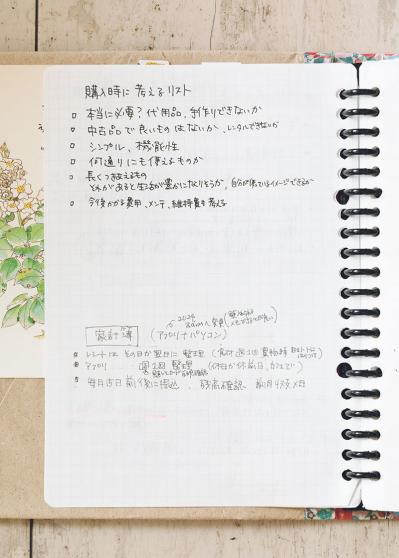 購入時に考えるリスト
本当に必要？代用品、手作りできないか
中古品で良いものはないか、レンタルできないか
シンプル、機能性
何通りにも使えるものか
長くつき合えるもの
それがあると生活が豊かになりそうか、自分が使っているイメージできるか
今後かかる費用、メンテ、維持費も考える
2024
Zaimへ変更
家計簿 (アプリ+パソコン)
レシートはその日か翌日に整理 (食材週1回買物時
アプリ 週1回整理 (休日か休前日、カフェで)
毎月15日前後に振込、残高確認、